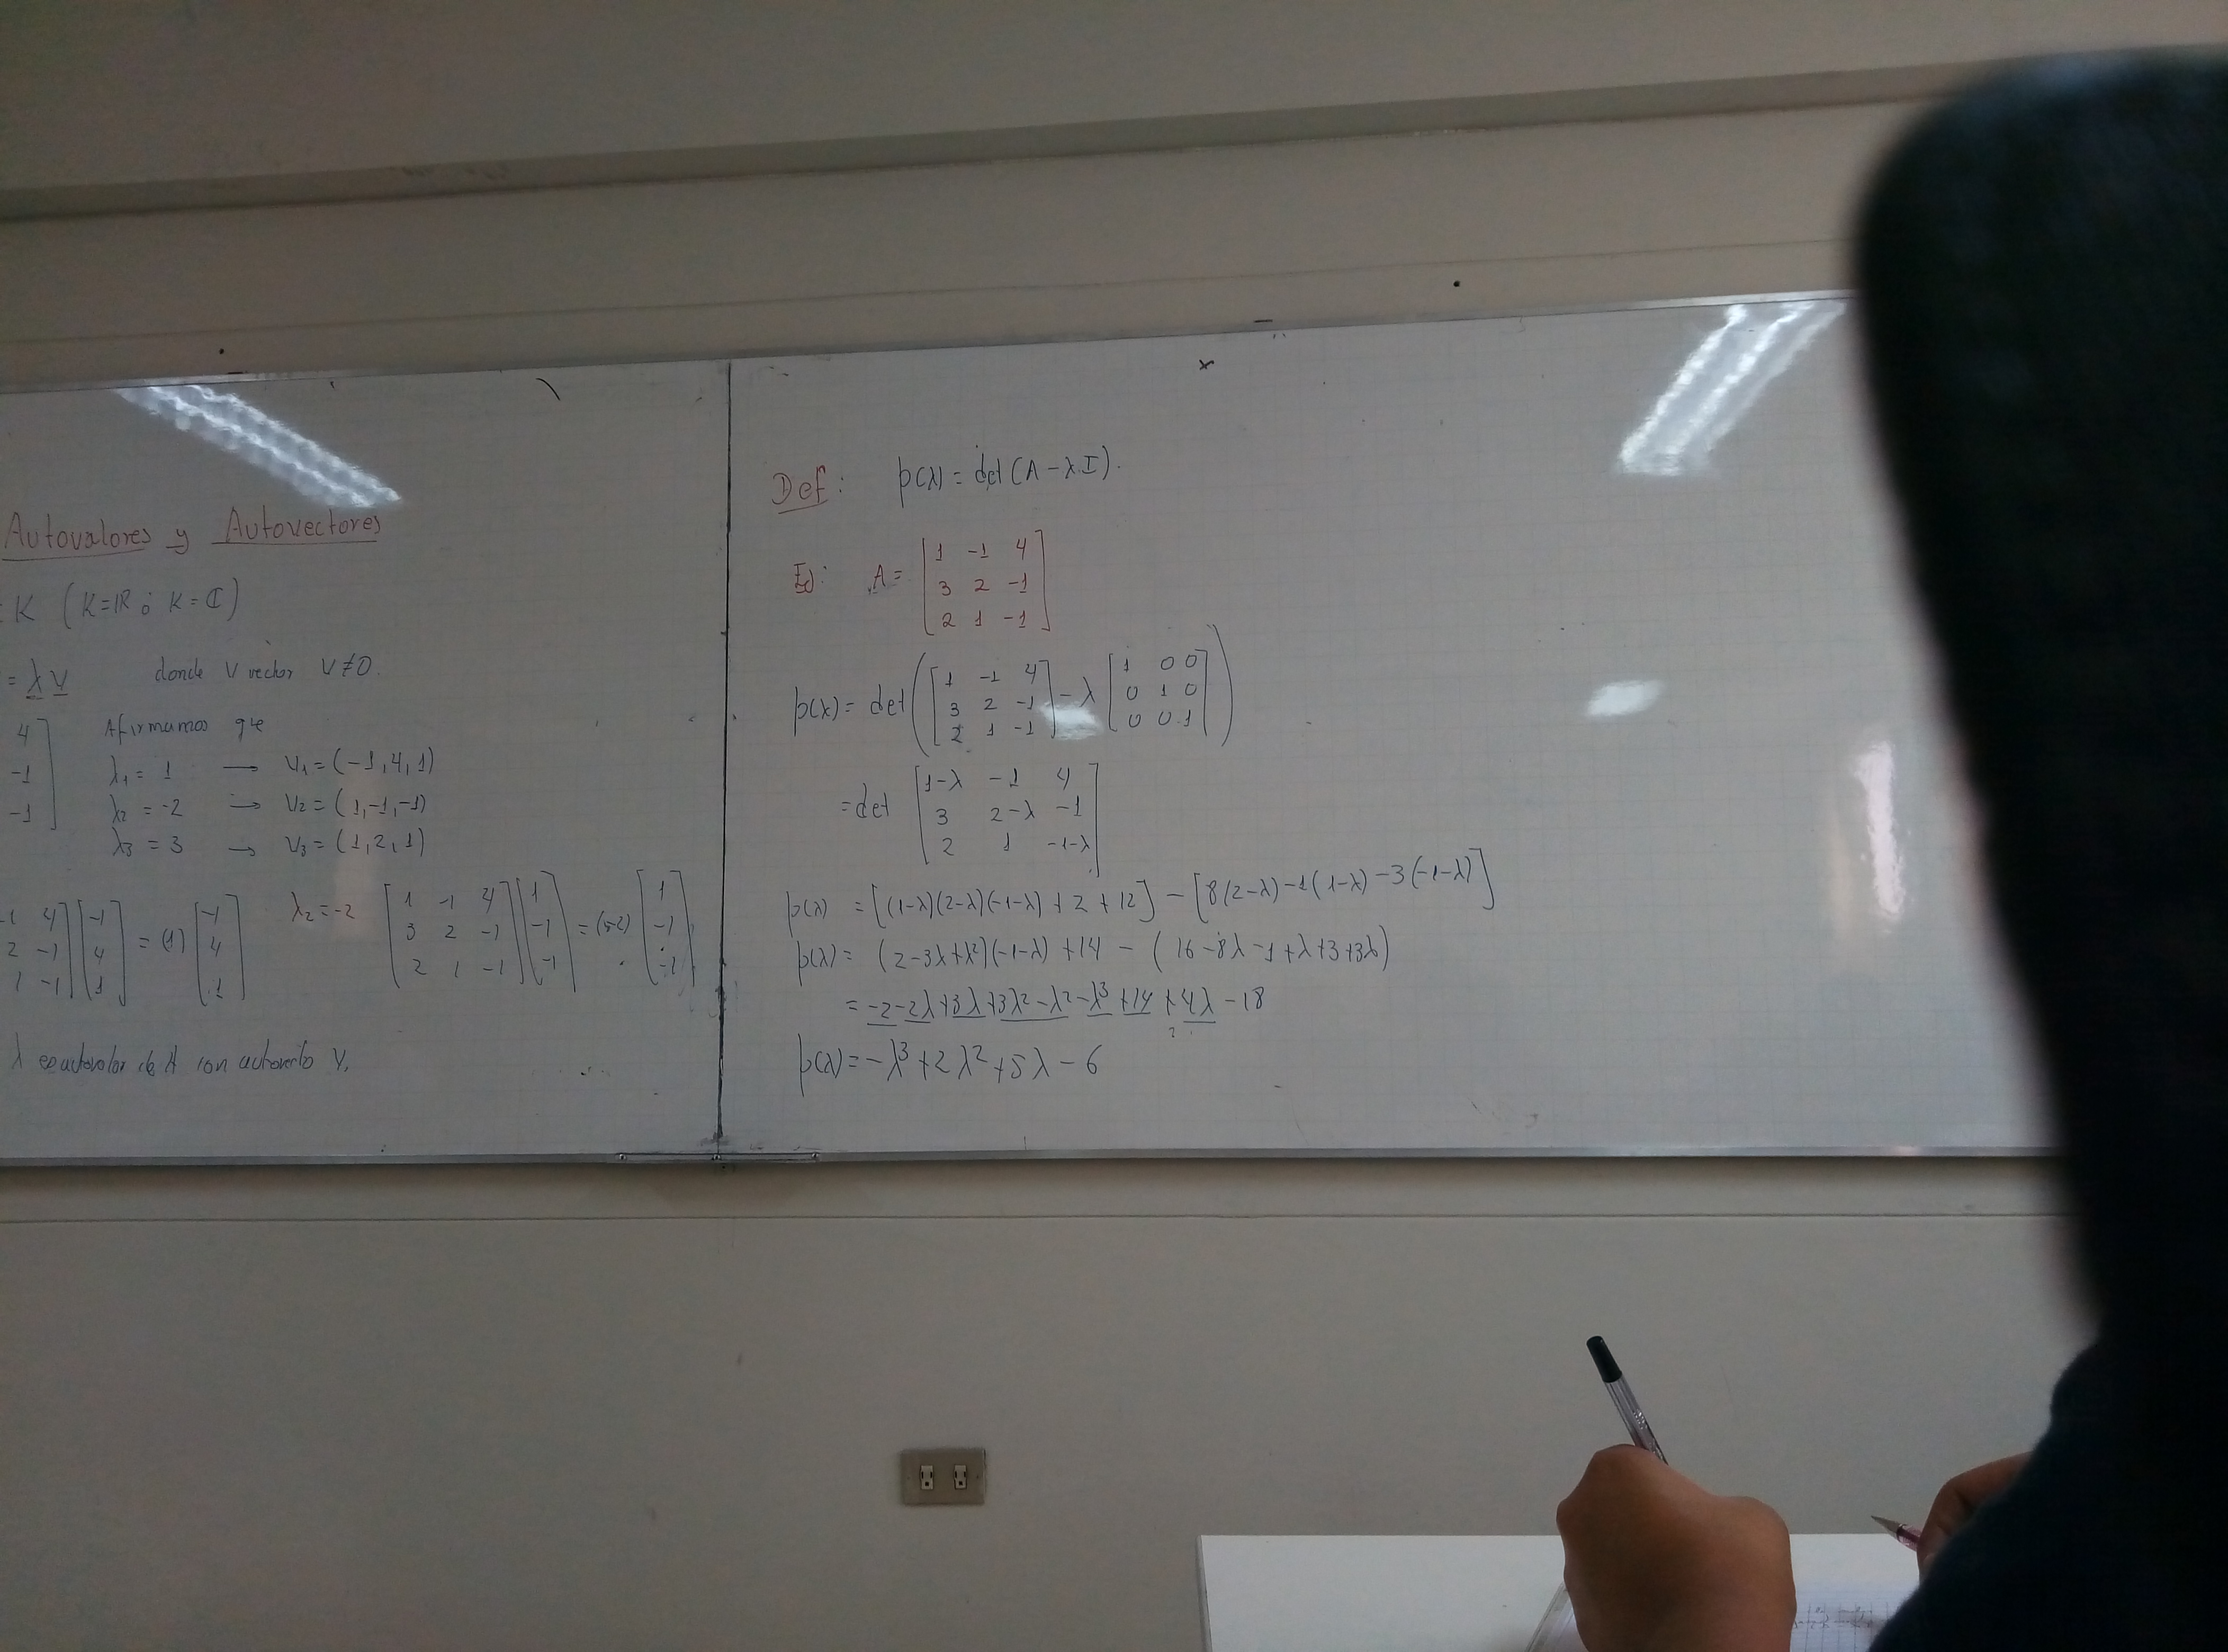 Autovalores y Autovectores
K (K=ℝ ó K=ℂ)
= λv donde v vector v≠0.
4
-1
-1
Afirmamos que
λ₁ = 1 → v₁=(-1,4,1)
λ₂ = -2 → v₂=(1,-1,-1)
λ₃ = 3 → v₃=(1,2,1)
-1 4] [-1] = (1) [-1]
2 -1] [4] [4]
1 -1] [1] [1]
λ₂=-2 [1 -1 4] [1] = (-2) [1]
[3 2 -1] [-1] [-1]
[2 1 -1] [-1] [-1]
λ es autovalor de A con
Def: p(λ) = det(A-λI).
Ej: A= [1 -1 4]
[3 2 -1]
[2 1 -1]
p(λ)= det([1 -1 4] - λ [1 0 0])
[3 2 -1] [0 1 0]
[2 1 -1] [0 0 1]
=det [1-λ -1 4]
[3 2-λ -1]
[2 1 -1-λ]
p(λ) = [(1-λ)(2-λ)(-1-λ) + 2 + 12] - [8(2-λ) -1(1-λ) -3(-1-λ)]
p(λ) = (2-3λ+λ²)(-1-λ) +14 - (16-8λ-1+λ+3+3λ)
= -2-2λ+3λ+3λ²-λ²-λ³+14+4λ-18
p(λ)= -λ³+2λ²+5λ-6